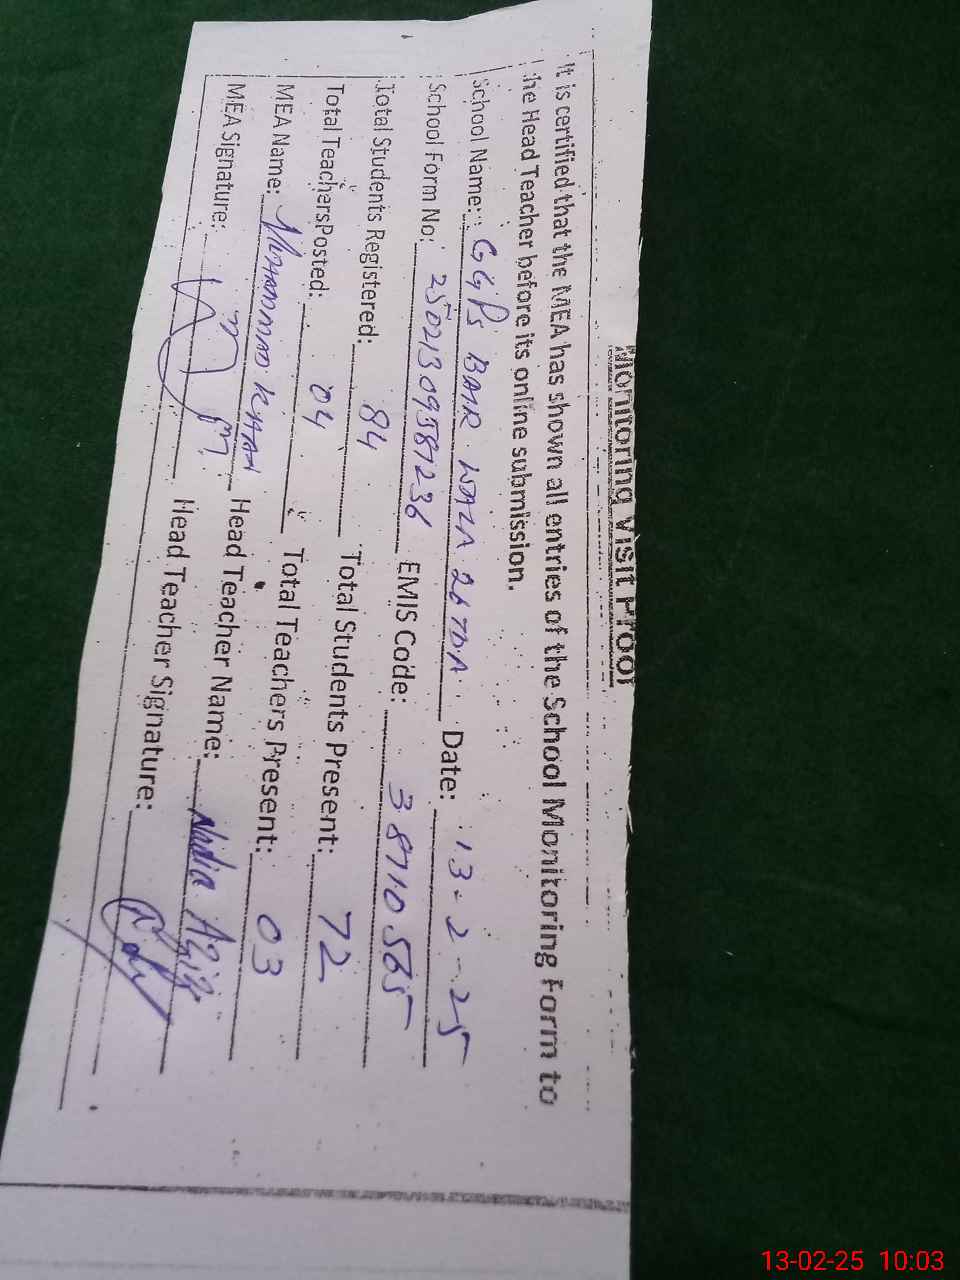 Monitoring Visit Proof
It is certified that the MEA has shown all entries of the School Monitoring Form to
the Head Teacher before its online submission.
School Name: GGPS BAIR WALA 26 TDA Date: 13-2-25
School Form No: 25021309581236 EMIS Code: 38710565
Total Students Registered: 84 Total Students Present: 72
Total Teachers Posted: 04 Total Teachers Present: 03
MEA Name: MUHAMMAD KHAN Head Teacher Name: Nadia Aziz
MEA Signature: Head Teacher Signature:
13-02-25 10:03